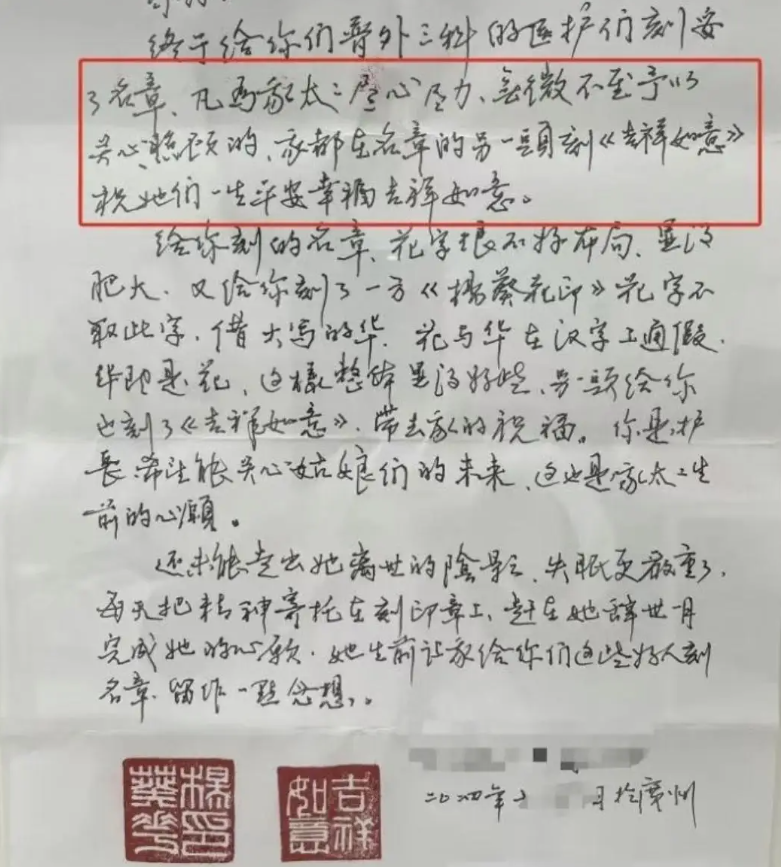 终于给你们普外三科的医护们刻妥
了名章、凡为我太太尽心尽力、無微不至予以
关心、照顾的、我都在名章的另一頭刻《吉祥如意》
祝她们一生平安幸福吉祥如意。
给你刻的名章、花字很不好布局、显得
肥大、又给你刻了一方《楊葵花印》花字不
取此字、借大写的华、花与华在汉字上通假、
华即是花、这樣整体显得好些、另一頭给你
也刻了《吉祥如意》、带去我的祝福。你是护
長、希望能关心姑娘们的未来、这也是我太太生
前的心願。
还未能走出她离世的陰影、失眠更严重了、
每天把精神寄托在刻印章上、赶在她辞世月
完成她的心愿、她生前让我给你们这些好人刻
名章、留作一點念想。
楊印葵華
吉祥如意
二〇二四年 月於廣州